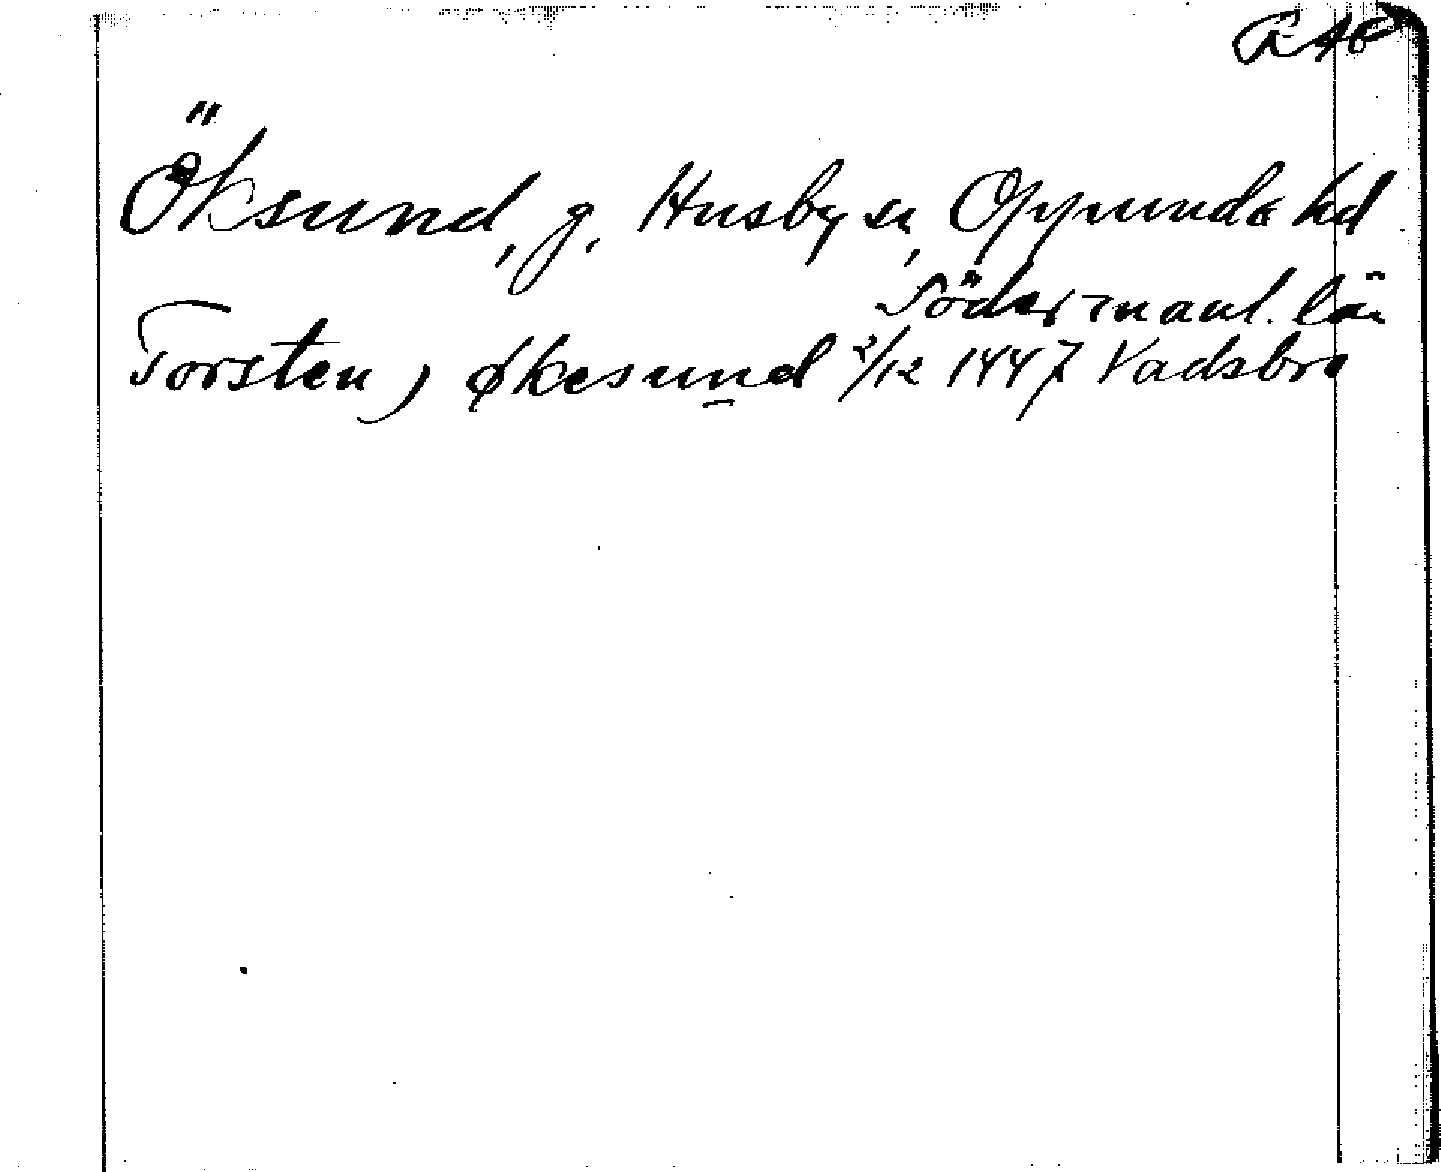 Öksund, g. Husby sn, Oppunda hd
Södermanl. län
Torsten j økesund 2/12 1447 Vadsbro